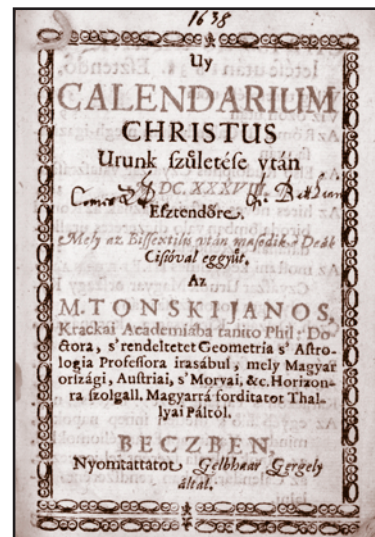 1638
Uy
CALENDARIUM
CHRISTUS
Urunk ſzületéſe vtán
M.DC.XXXVIII.
Eſztendőre.
Mely az Biſſextilis vtán maſodik. Deák
Ciſióval eggyűt.
Az
M. TONSKI JANOS,
Krackai Academiába tanito Phil: Do-
ctora, s' rendeltetet Geometria s' Aſtro-
logia Profeſſora irasábul, mely Magyar
orſzági, Auſtriai, s' Morvai, &c. Horizon-
ra ſzolgall. Magyarrá forditatot Thal-
lyai Páltól.
BECZBEN,
Nyomtattatot, Gelbhaar Gergely
által.